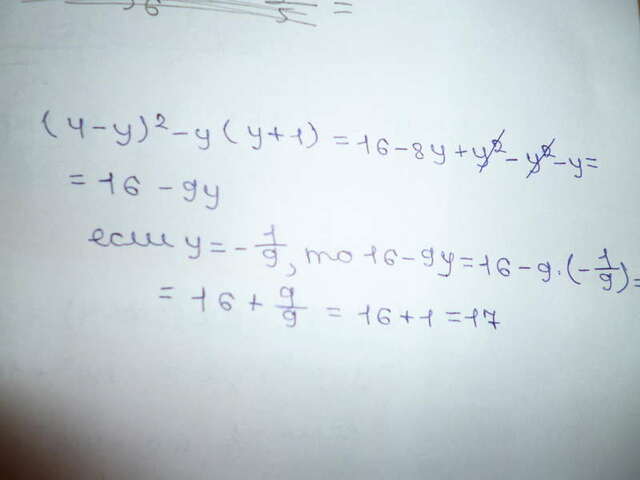 (4-y)² - y(y+1) = 16 - 8y + y² - y² - y =
= 16 - 9y
если y = -1/9, то 16 - 9y = 16 - 9·(-1/9) =
= 16 + 9/9 = 16 + 1 = 17